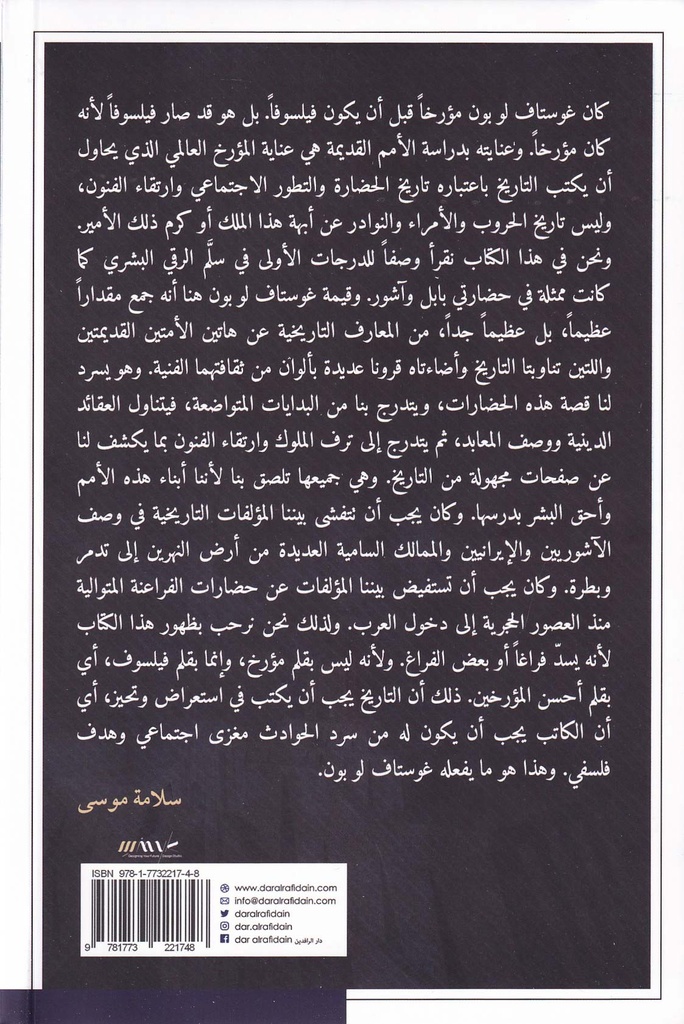 كان غوستاف لو بون مؤرخاً قبل أن يكون فيلسوفاً. بل هو قد صار فيلسوفاً لأنه
كان مؤرخاً. وعنايته بدراسة الأمم القديمة هي عناية المؤرخ العالمي الذي يحاول
أن يكتب التاريخ باعتباره تاريخ الحضارة والتطور الاجتماعي وارتقاء الفنون،
وليس تاريخ الحروب والأمراء والنوادر عن أبهة هذا الملك أو كرم ذلك الأمير.
ونحن في هذا الكتاب نقرأ وصفاً للدرجات الأولى في سلَّم الرقي البشري كما
كانت ممثلة في حضارتي بابل وآشور. وقيمة غوستاف لو بون هنا أنه جمع مقداراً
عظيماً، بل عظيماً جداً، من المعارف التاريخية عن هاتين الأمتين القديمتين
واللتين تناوبتا التاريخ وأضاءتاه قرونا عديدة بألوان من ثقافتهما الفنية. وهو يسرد
لنا قصة هذه الحضارات، ويتدرج بنا من البدايات المتواضعة، فيتناول العقائد
الدينية ووصف المعابد، ثم يتدرج إلى ترف الملوك وارتقاء الفنون بما يكشف لنا
عن صفحات مجهولة من التاريخ. وهي جميعها تلصق بنا لأننا أبناء هذه الأمم
وأحق البشر بدرسها. وكان يجب أن تتفشى بيننا المؤلفات التاريخية في وصف
الآشوريين والإيرانيين والممالك السامية العديدة من أرض النهرين إلى تدمر
وبطرة. وكان يجب أن تستفيض بيننا المؤلفات عن حضارات الفراعنة المتوالية
منذ العصور الحجرية إلى دخول العرب. ولذلك نحن نرحب بظهور هذا الكتاب
لأنه يسدّ فراغاً أو بعض الفراغ. ولأنه ليس بقلم مؤرخ، وإنما بقلم فيلسوف، أي
بقلم أحسن المؤرخين. ذلك أن التاريخ يجب أن يكتب في استعراض وتحيز، أي
أن الكاتب يجب أن يكون له من سرد الحوادث مغزى اجتماعي وهدف
فلسفي. وهذا هو ما يفعله غوستاف لو بون.
سلامة موسى
ISBN 978-1-7732217-4-8
9 781773 221748
www.daralrafidain.com
info@daralrafidain.com
daralrafidain
dar.alrafidain
dar alrafidain دار الرافدين